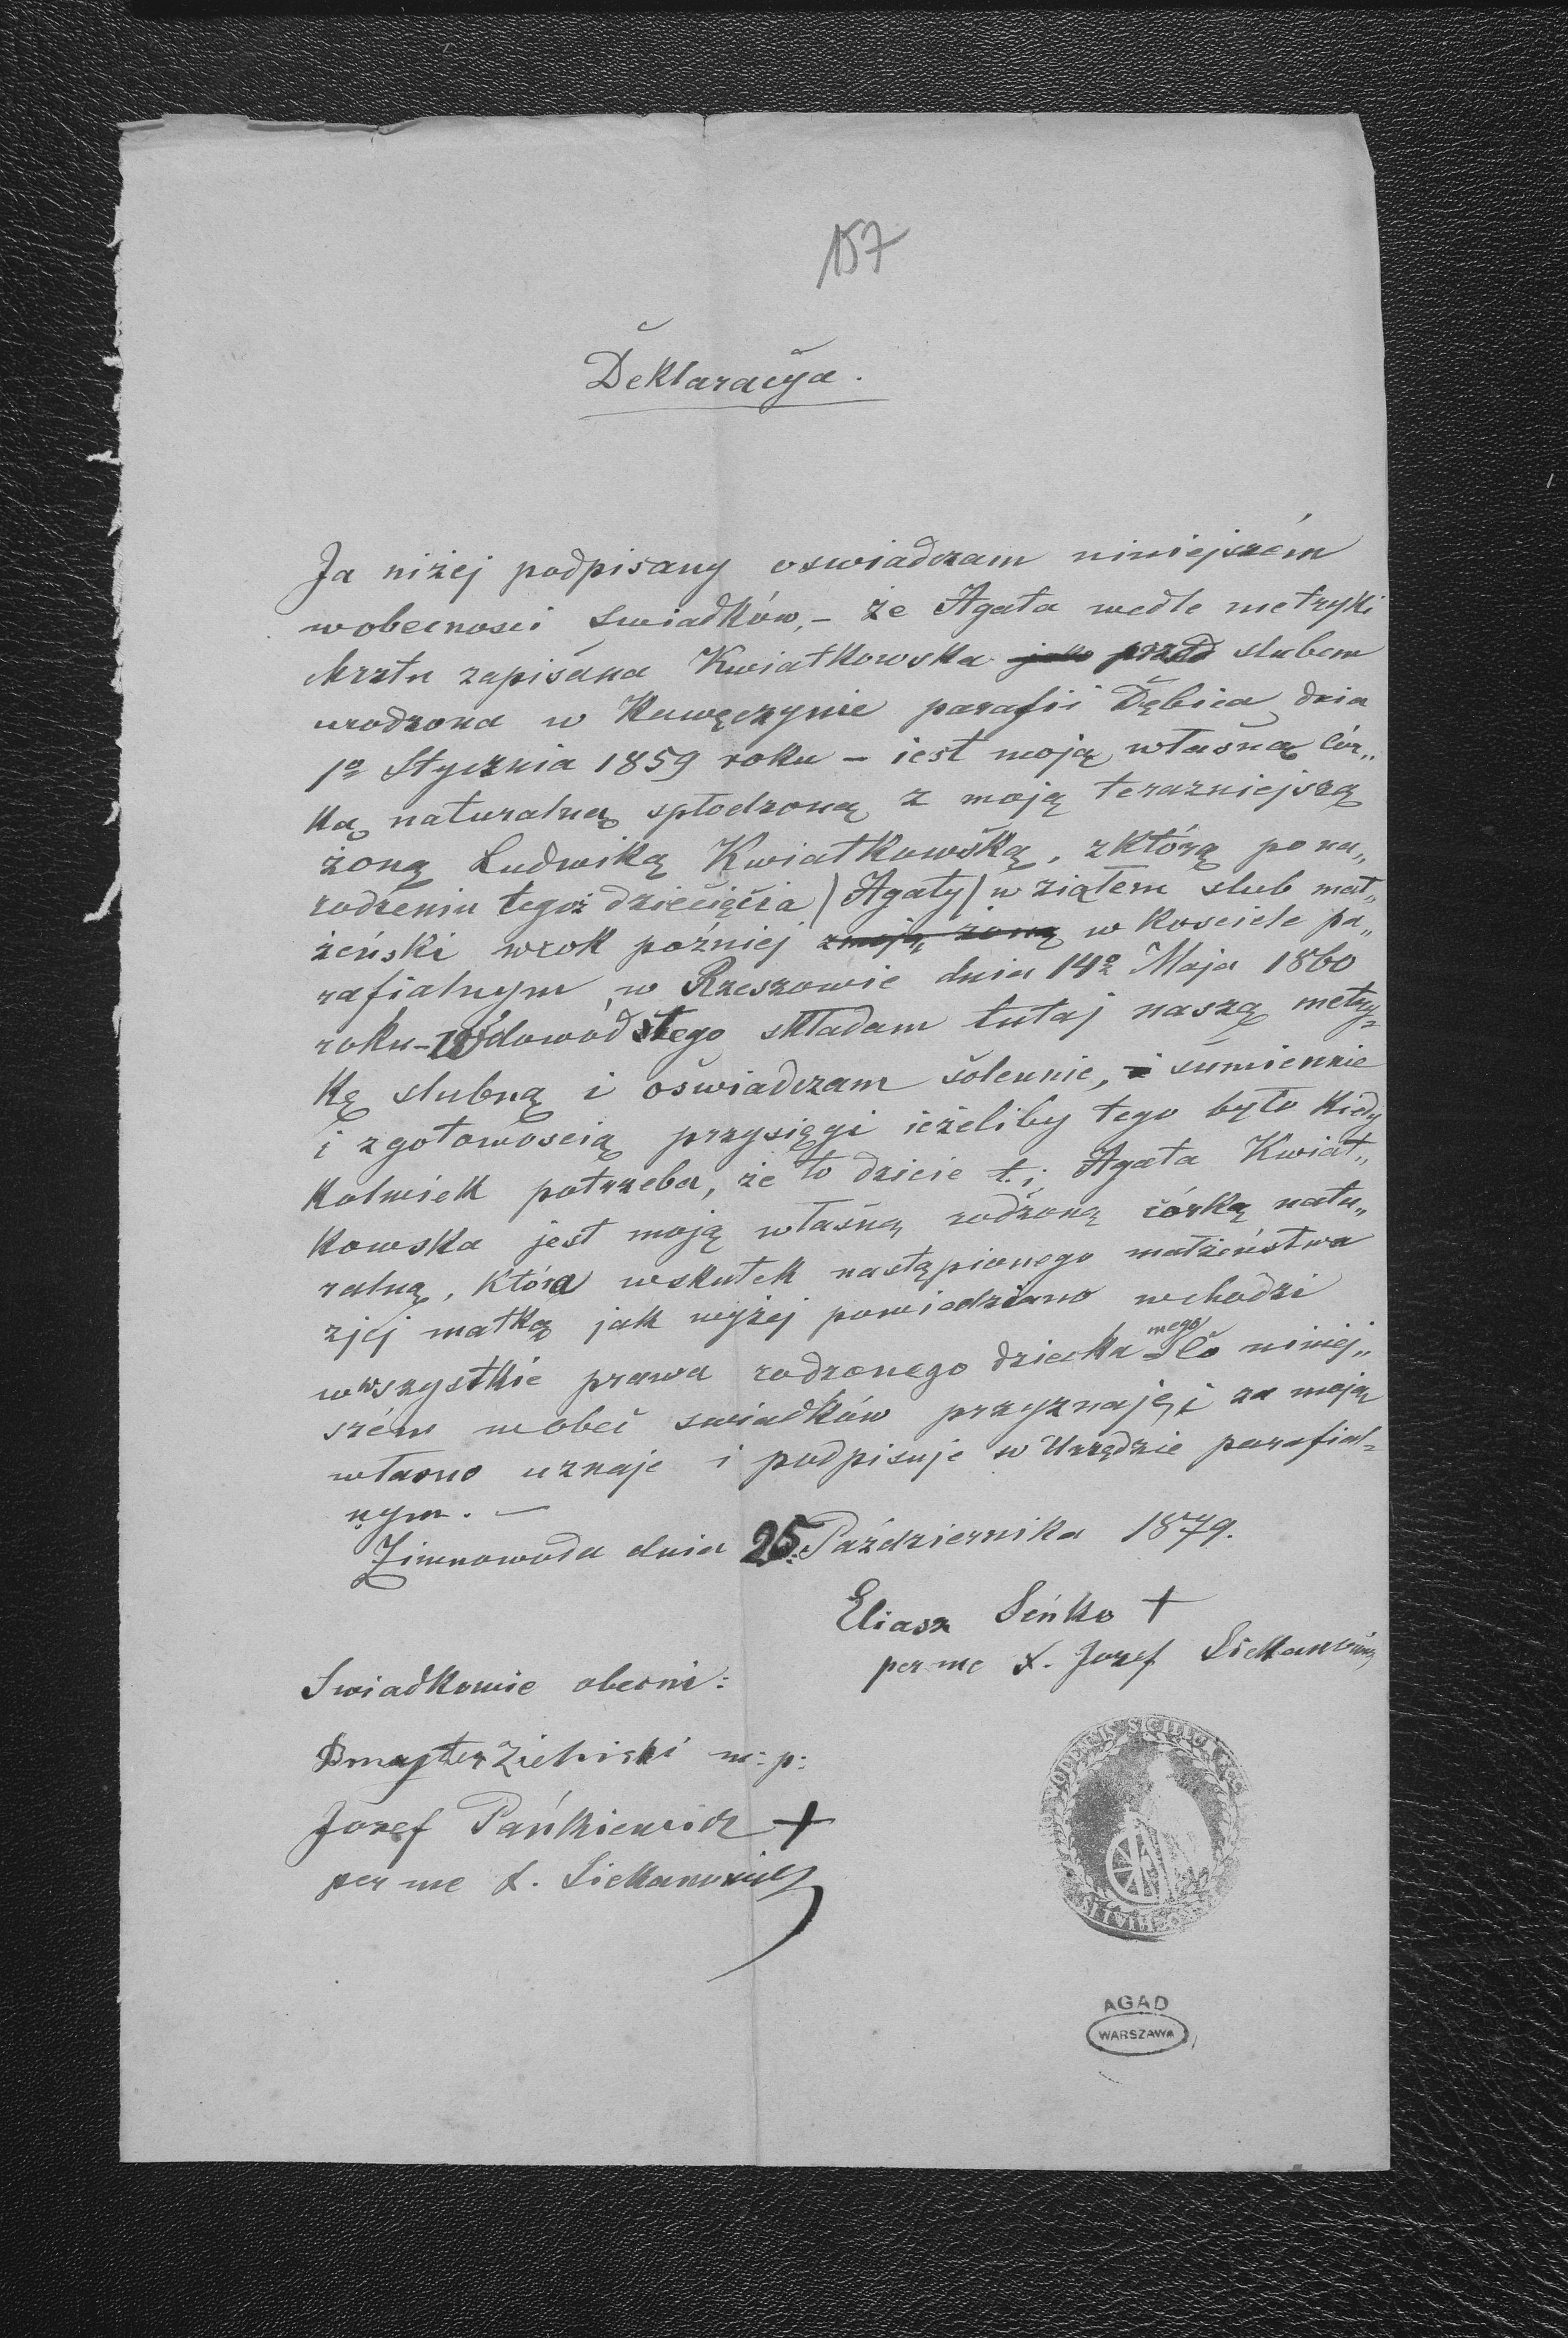 157
Deklaracya.
Ja niżej podpisany oswiadczam niniejszém
wobecnosci swiadków, - że Agata wedle metryki
chrztu zapisana Kwiatkowska jako przed slubem
urodzona w Kawęczynie parafii Dębica dnia
1go Stycznia 1859 roku - iest moją własną cór„
ką naturalną spłodzoną z moją terazniejszą
żoną Ludwiką Kwiatkowską, zktórą po na„
rodzeniu tegoż dziecięcia /Agaty/ wziąłem slub mał„
żeński wrok pożniej zmoją żoną w kosciele pa„
rafialnym w Rzeszowie dnia 14go Maja 1860
roku - w dowód tego składam tutaj naszą metry„
kę slubną i oświadczam solennie, i sumiennie
i zgotowoscią przysięgi ieżeliby tego było kiedy
kolwiek potrzeba, że to dziecie t. j. Agata Kwiat„
kowska jest moją własną rodzoną córką natu„
ralną, która wskutek nastąpionego małżeństwa
zjej matką jak wyżej powiedziano wchodzi
w wszystkie prawa rodzonego dziecka mego - Co niniej„
szém wobec swiadków przyznaję, i za moją
własno uznaje i podpisuje w Urzędzie parafial=
nym. -
Zimnowoda dnia 25. Października 1879.
Eliasz Seńko +
per me X. Jozef Siekanowicz
Swiadkowie obecni:
Zieliński m: p:
Jozef Pańkiewicz +
per me X. Siekanowicz
SIGILLUM
AGAD
WARSZAWA